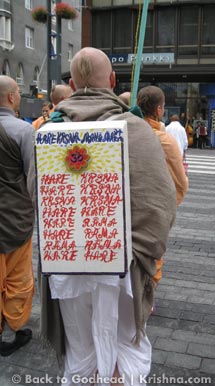 HARE KRSNA
ॐ
HARE KRSNA
HARE KRSNA
KRSNA KRSNA
HARE HARE
HARE RAMA
HARE RAMA
RAMA RAMA
HARE HARE
© Back to Godhead / Krishna.com